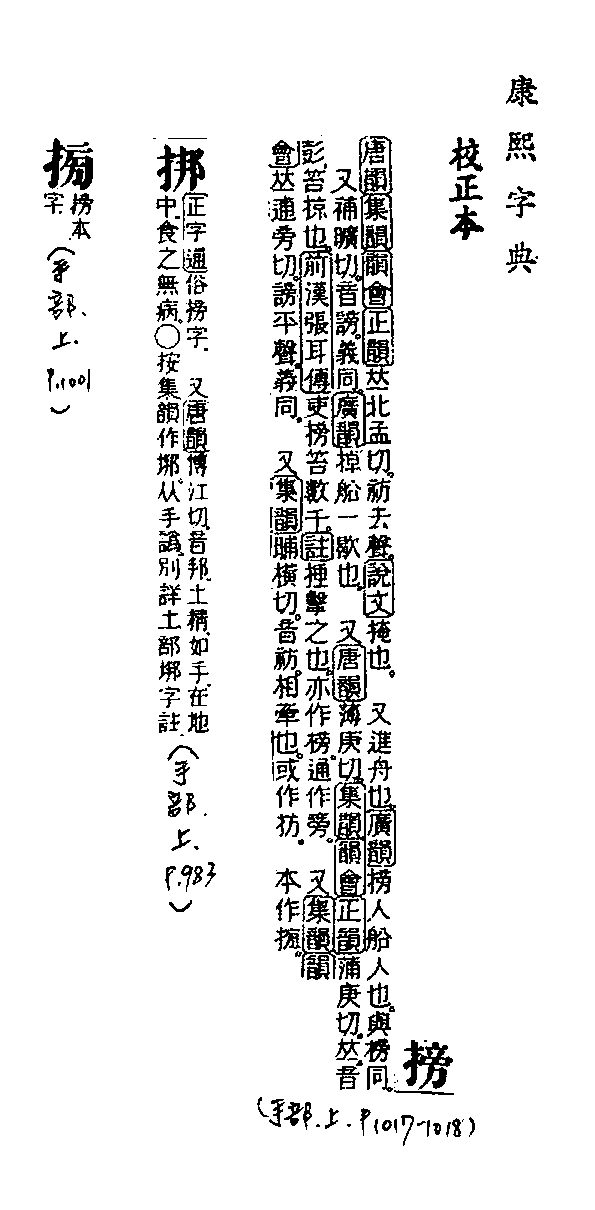 康熙字典
校正本
搒
唐韻集韻韻會正韻𠀤北孟切。舫去聲。說文掩也。 又進舟也。廣韻搒人船人也。與榜同。
又補曠切。音謗。義同。廣韻掉船一歇也。 又唐韻薄庚切。集韻韻會正韻蒲庚切。𠀤音
彭。笞掠也。前漢張耳傳吏榜笞數千。註捶擊之也。亦作榜。通作旁。 又集韻韻
會𠀤逋旁切。謗平聲。義同。 又集韻晡橫切。音祊。相牽也。或作㧍。 本作㨍。
(手部.上.P1017-1018)
挷
正字通俗搒字. 又唐韻博江切.音邦.土精.如手.在地
中.食之無病.〇按集韻作垹.从手譌.別詳土部垹字註.
(手部.上.P.983)
㨍
搒本
字.
(手部.上.P.1001)